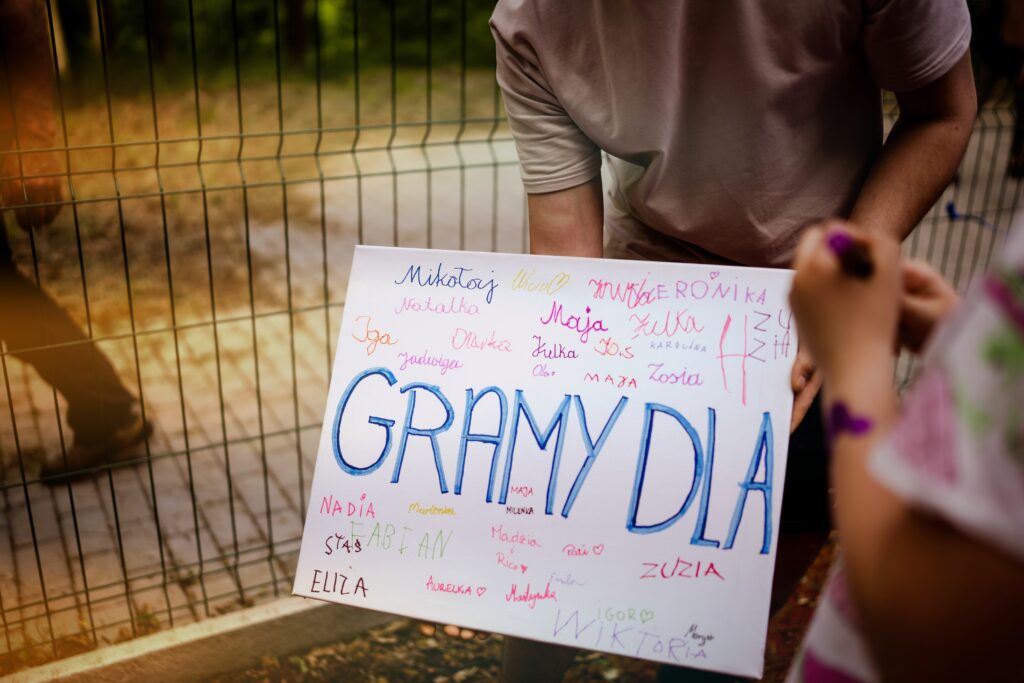 Mikołaj
WERONIKA
Natalka
Maja
Julka
Iga
Oliwka
Julka
KAROLINA
Jadwiga
Ola
MAJA
Zosia
ZUZIA
GRAMY DLA
MAJA
NADIA
MILENKA
FABIAN
Madzia
STAŚ
Rico
ZUZIA
ELIZA
AURELKA
Martynka
Emilia
IGOR
WIKTORIA